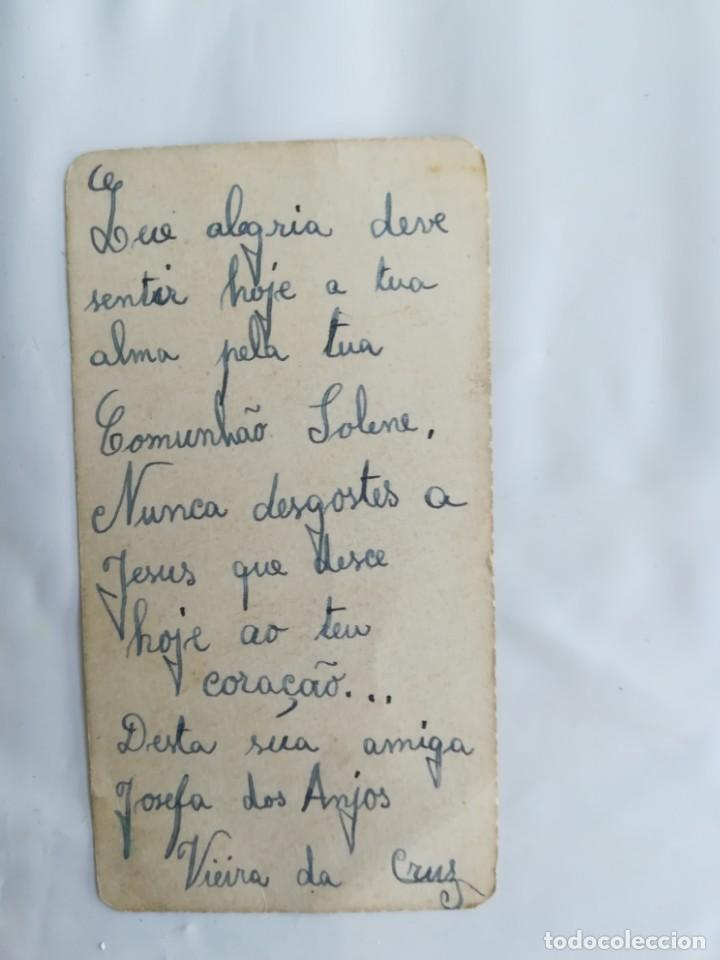 Que alegria deve
sentir hoje a tua
alma pela tua
Comunhão Solene,
Nunca desgostes a
Jesus que desce
hoje ao teu
coração...
Desta sua amiga
Josefa dos Anjos
Vieira da Cruz
todocoleccion